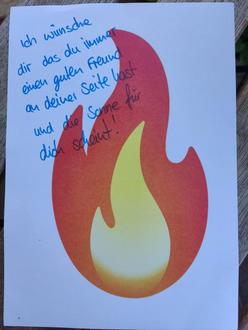 Ich wünsche
dir das du immer
einen guten Freund
an deiner Seite hast
und die Sonne für
dich scheint!